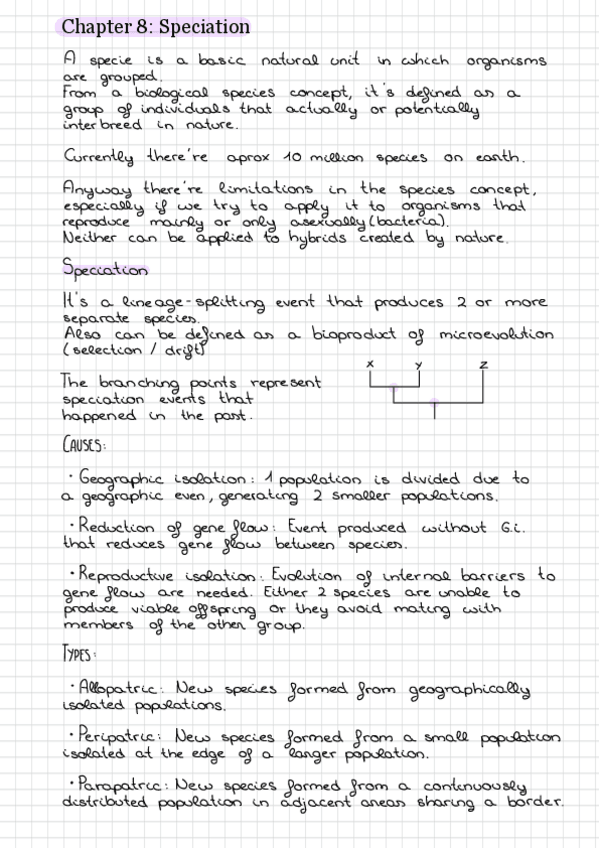 Chapter 8: Speciation
A specie is a basic natural unit in which organisms
are grouped.
From a biological species concept, it's defined as a
group of individuals that actually or potentially
interbreed in nature.
Currently there're aprox 10 million species on earth.
Anyway there're limitations in the species concept,
especially if we try to apply it to organisms that
reproduce mainly or only asexually (bacteria).
Neither can be applied to hybrids created by nature.
Speciation
It's a lineage-splitting event that produces 2 or more
separate species.
Also can be defined as a bioproduct of microevolution
(selection / drift)
X Y Z
The branching points represent
speciation events that
happened in the past.
CAUSES:
· Geographic isolation: 1 population is divided due to
a geographic even, generating 2 smaller populations.
· Reduction of gene flow: Event produced without G.i.
that reduces gene flow between species.
· Reproductive isolation: Evolution of internal barriers to
gene flow are needed. Either 2 species are unable to
produce viable offspring or they avoid mating with
members of the other group.
TYPES:
· Allopatric: New species formed from geographically
isolated populations.
· Peripatric: New species formed from a small population
isolated at the edge of a larger population.
· Parapatric: New species formed from a continuously
distributed population in adjacent areas sharing a border.